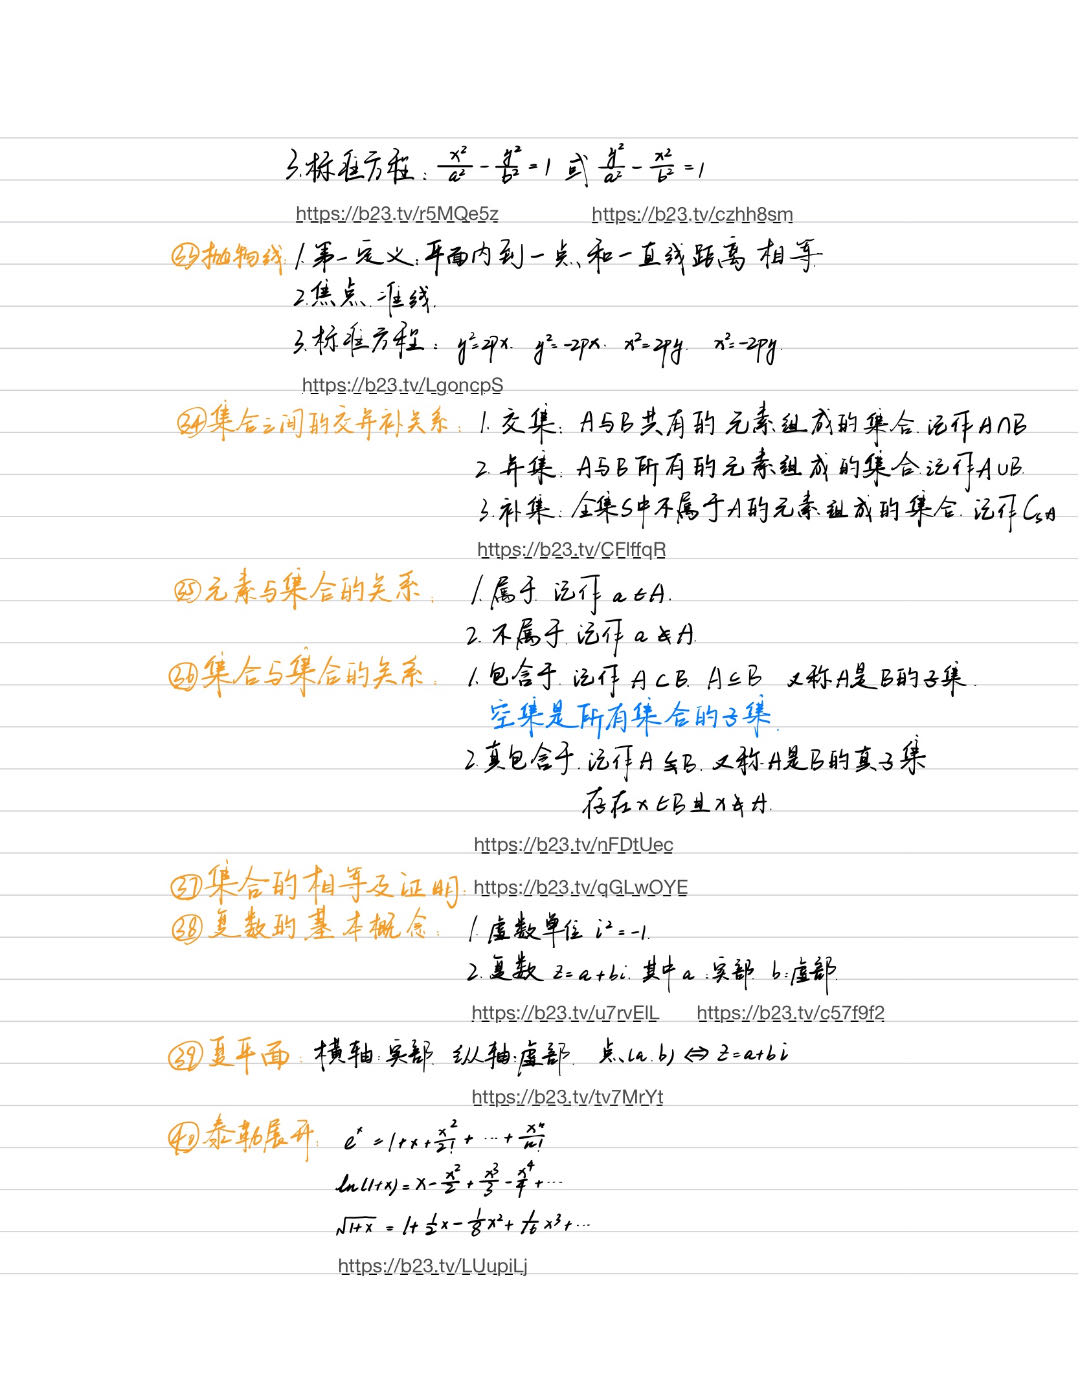 3.标准方程: x²/a² - y²/b² = 1 或 y²/a² - x²/b² = 1
https://b23.tv/r5MQe5z https://b23.tv/czhh8sm
㉝抛物线: 1.第一定义:平面内到一点和一直线距离相等
2.焦点.准线.
3.标准方程: y²=2px. y²=-2px. x²=2py. x²=-2py.
https://b23.tv/LgoncpS
㉞集合之间的交并补关系: 1.交集: A与B共有的元素组成的集合.记作A∩B
2.并集: A与B所有的元素组成的集合.记作A∪B.
3.补集: 全集S中不属于A的元素组成的集合.记作∁sA
https://b23.tv/CFlffqR
㉟元素与集合的关系: 1.属于.记作a∈A.
2.不属于.记作a∉A
㊱集合与集合的关系: 1.包含于.记作A⊂B. A⊆B 又称A是B的子集.
空集是所有集合的子集.
2.真包含于.记作A⫋B.又称A是B的真子集
存在x∈B且x∉A.
https://b23.tv/nFDtUec
㊲集合的相等及证明: https://b23.tv/qGLwOYE
㊳复数的基本概念: 1.虚数单位 i²=-1.
2.复数 z=a+bi.其中a:实部. b:虚部.
https://b23.tv/u7rvElL https://b23.tv/c57f9f2
㊴复平面: 横轴:实部. 纵轴:虚部. 点(a.b)⇔z=a+bi
https://b23.tv/tv7MrYt
㊵泰勒展开: eˣ = 1+x+x²/2!+ ⋯ +xⁿ/n!
ln(1+x) = x - x²/2 + x³/3 - x⁴/4 + ⋯
√(1+x) = 1+1/2x - 1/8x² + 1/16x³ + ⋯
https://b23.tv/LUupiLj